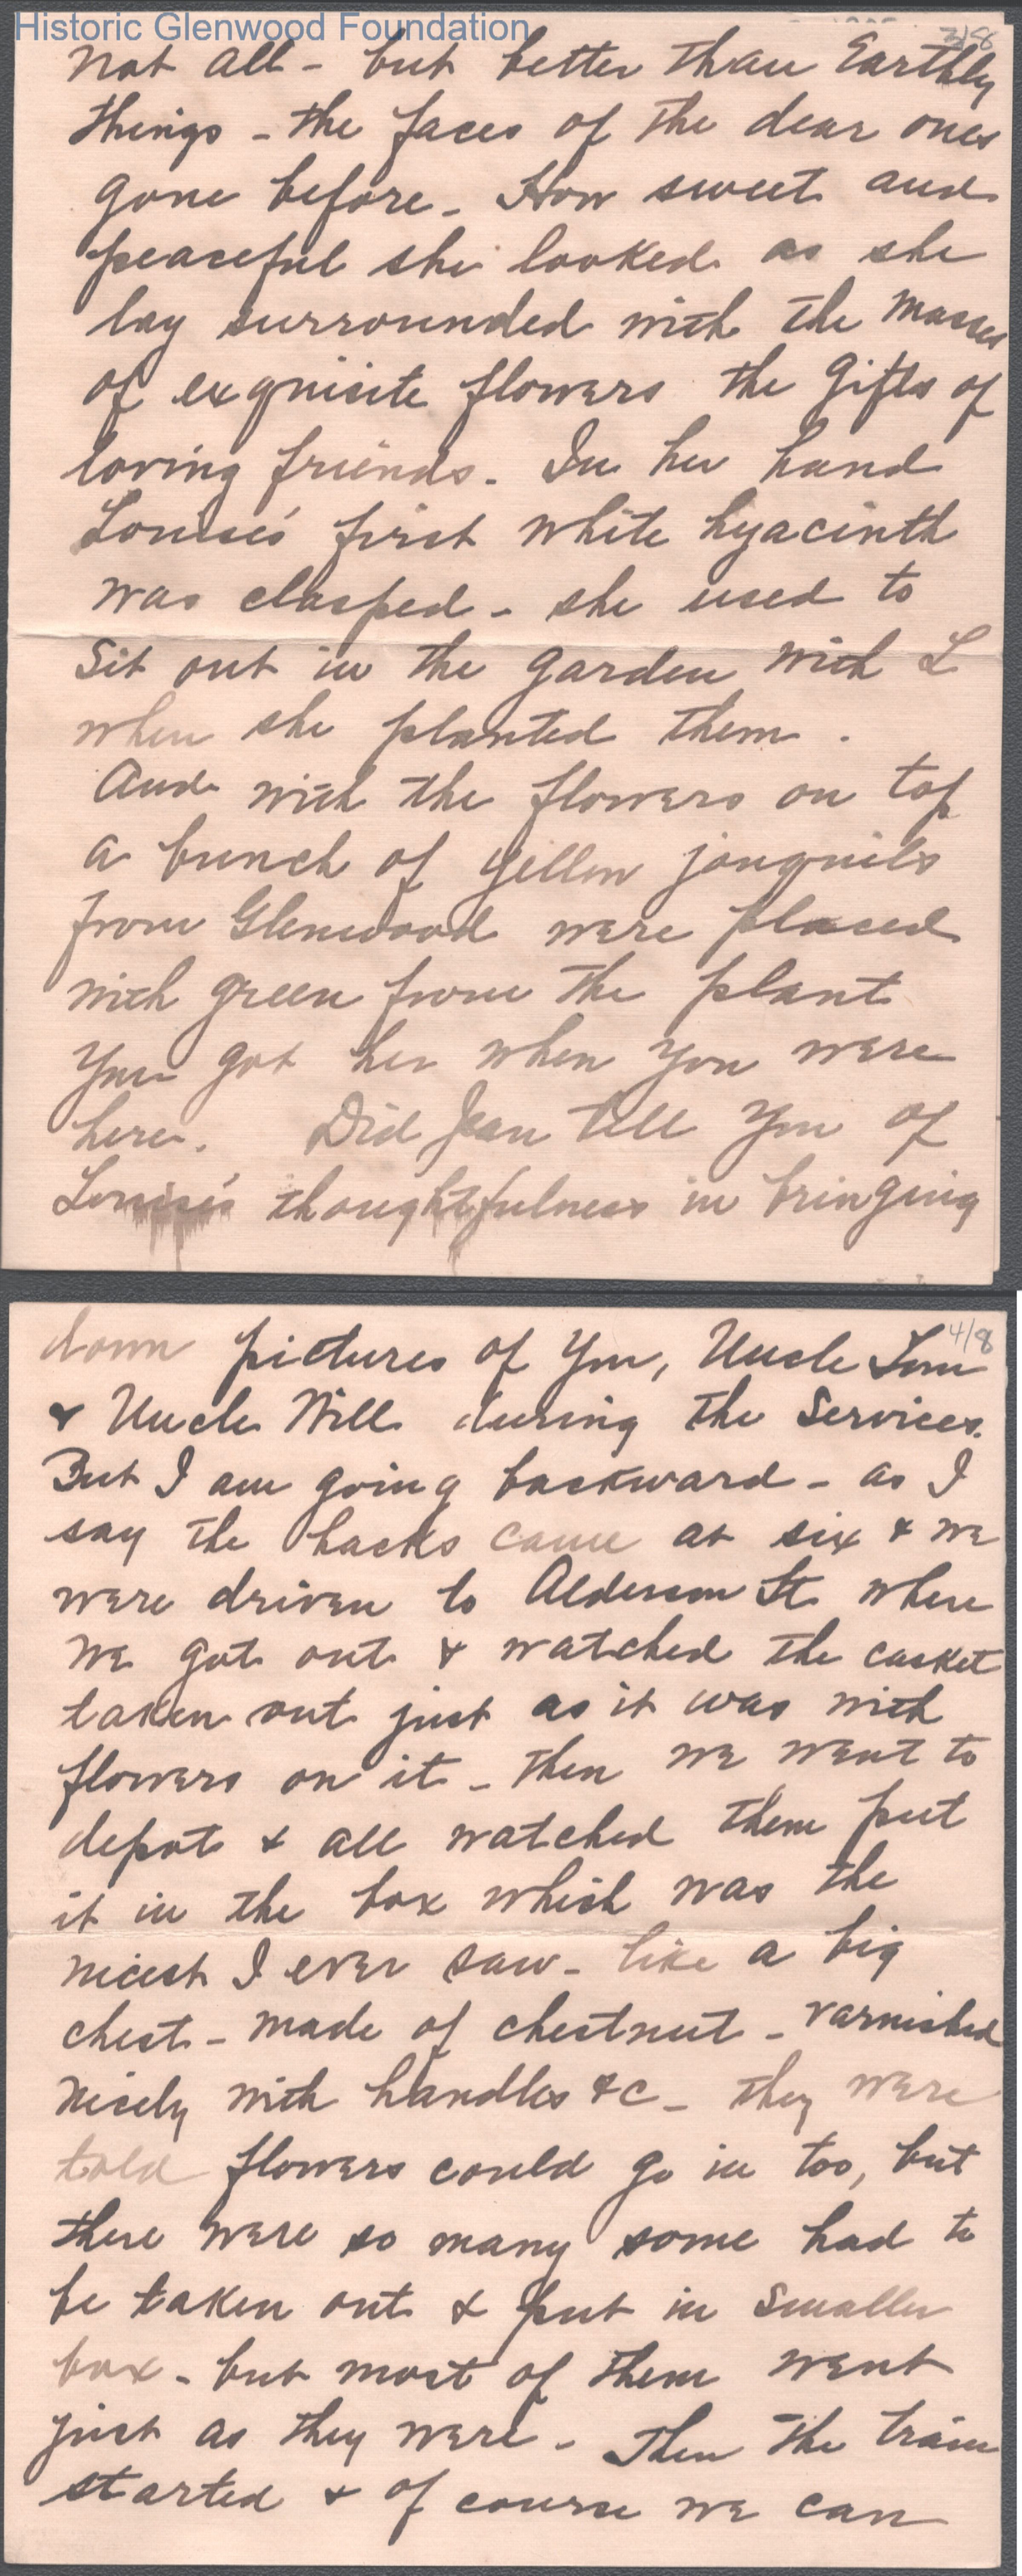 Historic Glenwood Foundation
3/8
not all - but better than Earthly
things - the faces of the dear ones
gone before - How sweet and
peaceful she looked as she
lay surrounded with the masses
of exquisite flowers the gifts of
loving friends - In her hand
Louise's first white hyacinth
was clasped - she used to
sit out in the garden with L
when she planted them .
And with the flowers on top
a bunch of yellow jonquils
from Glenwood were placed
with green from the plant
you got her when you were
here. Did Jean tell you of
Louise's thoughtfulness in bringing
4/8
down pictures of you, Uncle Tom
& Uncle Will during the services.
But I am going backward - as I
say the hacks came at six & we
were driven to Alderson St. where
we got out & watched the casket
taken out just as it was with
flowers on it - then we went to
depot & all watched them put
it in the box which was the
nicest I ever saw - like a big
chest - made of chestnut - varnished
nicely with handles &c - they were
told flowers could go in too, but
there were so many some had to
be taken out & put in smaller
box - but most of them went
just as they were - Then the train
started & of course we can